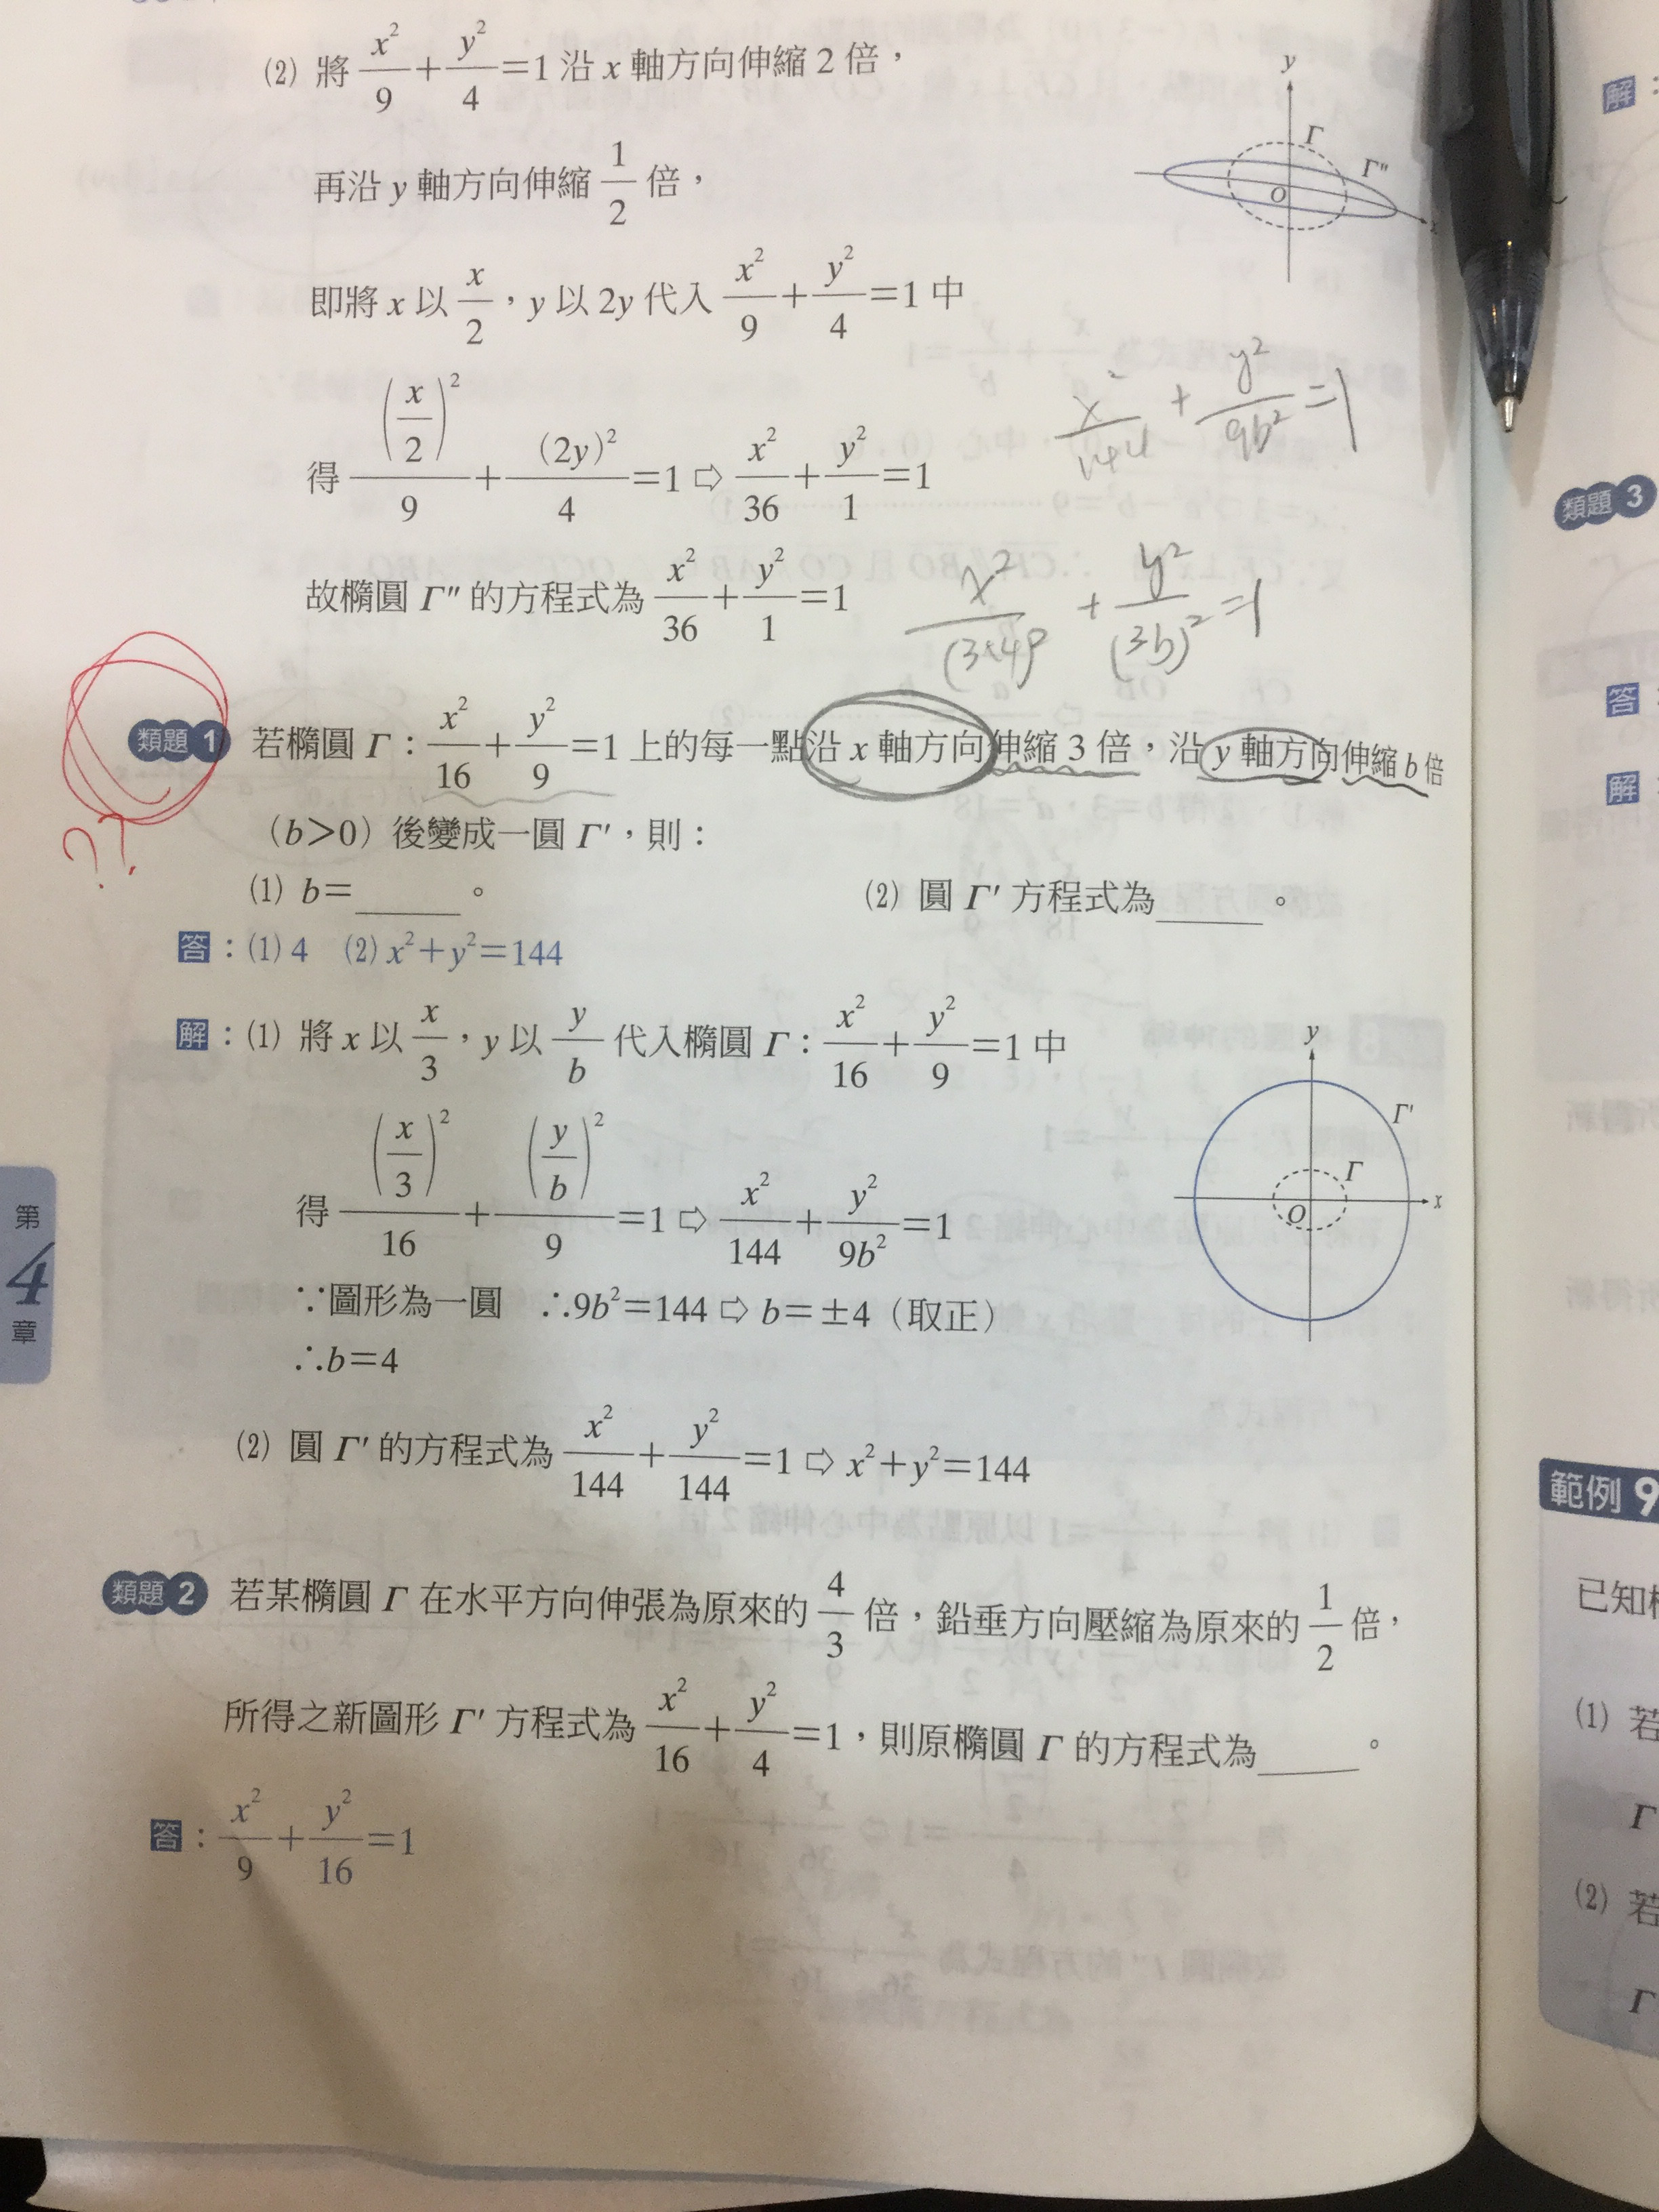 (2) 將 x²/9 + y²/4 = 1 沿 x 軸方向伸縮 2 倍，
再沿 y 軸方向伸縮 1/2 倍，
即將 x 以 x/2，y 以 2y 代入 x²/9 + y²/4 = 1 中
得 (x/2)²/9 + (2y)²/4 = 1 ⇨ x²/36 + y²/1 = 1
故橢圓 Γ" 的方程式為 x²/36 + y²/1 = 1
y
Γ
Γ"
O
x
x²/144 + y²/9b² = 1
x²/(3×4)² + y²/(3b)² = 1
??
類題 1 若橢圓 Γ：x²/16 + y²/9 = 1 上的每一點沿 x 軸方向伸縮 3 倍，沿 y 軸方向伸縮 b 倍
（b＞0）後變成一圓 Γ'，則：
(1) b=＿＿＿。 (2) 圓 Γ' 方程式為＿＿＿。
答：(1) 4 (2) x²+y²=144
解：(1) 將 x 以 x/3，y 以 y/b 代入橢圓 Γ：x²/16 + y²/9 = 1 中
得 (x/3)²/16 + (y/b)²/9 = 1 ⇨ x²/144 + y²/9b² = 1
∵圖形為一圓 ∴9b²=144 ⇨ b=±4（取正）
∴b=4
y
Γ'
Γ
O
x
(2) 圓 Γ' 的方程式為 x²/144 + y²/144 = 1 ⇨ x²+y²=144
類題 2 若某橢圓 Γ 在水平方向伸張為原來的 4/3 倍，鉛垂方向壓縮為原來的 1/2 倍，
所得之新圖形 Γ' 方程式為 x²/16 + y²/4 = 1，則原橢圓 Γ 的方程式為＿＿＿。
答：x²/9 + y²/16 = 1
第
4
章
解：
類題 3
答
解
範例 9
已知
(1) 若
Γ
(2) 若
Γ